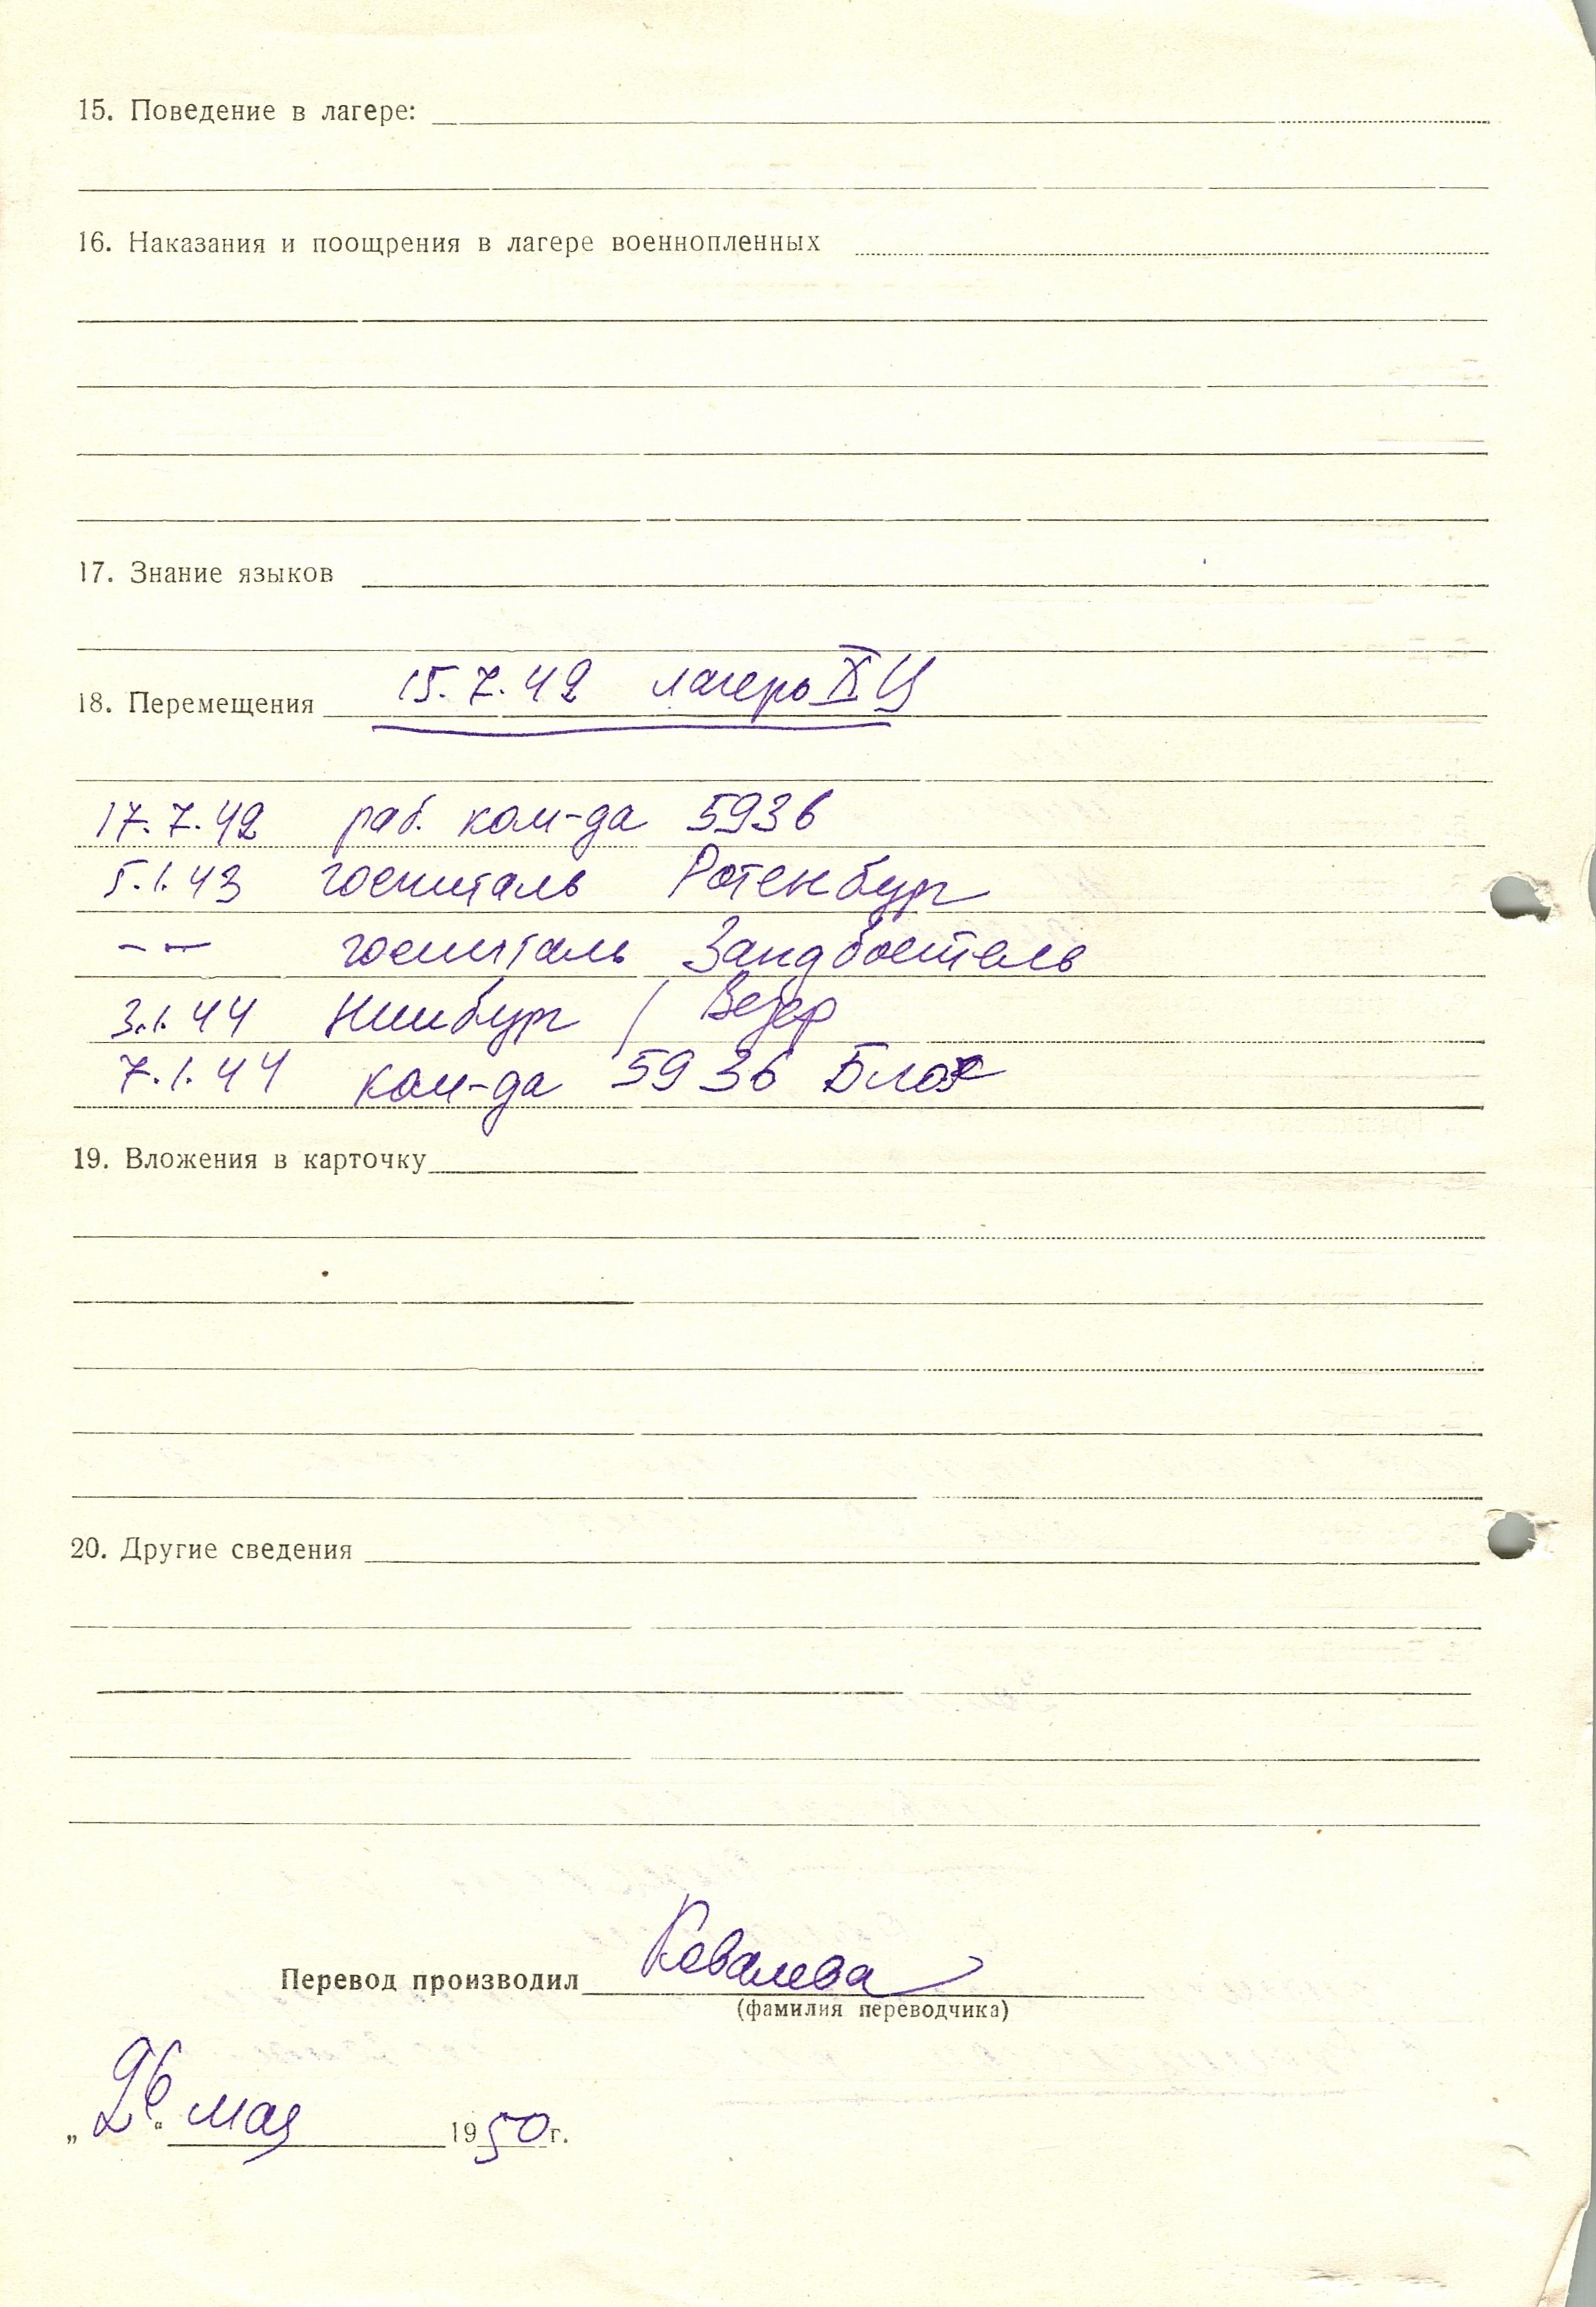 15. Поведение в лагере:
16. Наказания и поощрения в лагере военнопленных
17. Знание языков
18. Перемещения 15.7.42 лагерь X Ц
17.7.42 раб. ком-да 5936
5.1.43 госпиталь Ротенбург
-"- госпиталь Зандбосталь
3.1.44 Нинбург / Везер
7.1.44 ком-да 5936
19. Вложения в карточку
20. Другие сведения
Перевод производил Ковалева
(фамилия переводчика)
„26“ мая 1950 г.